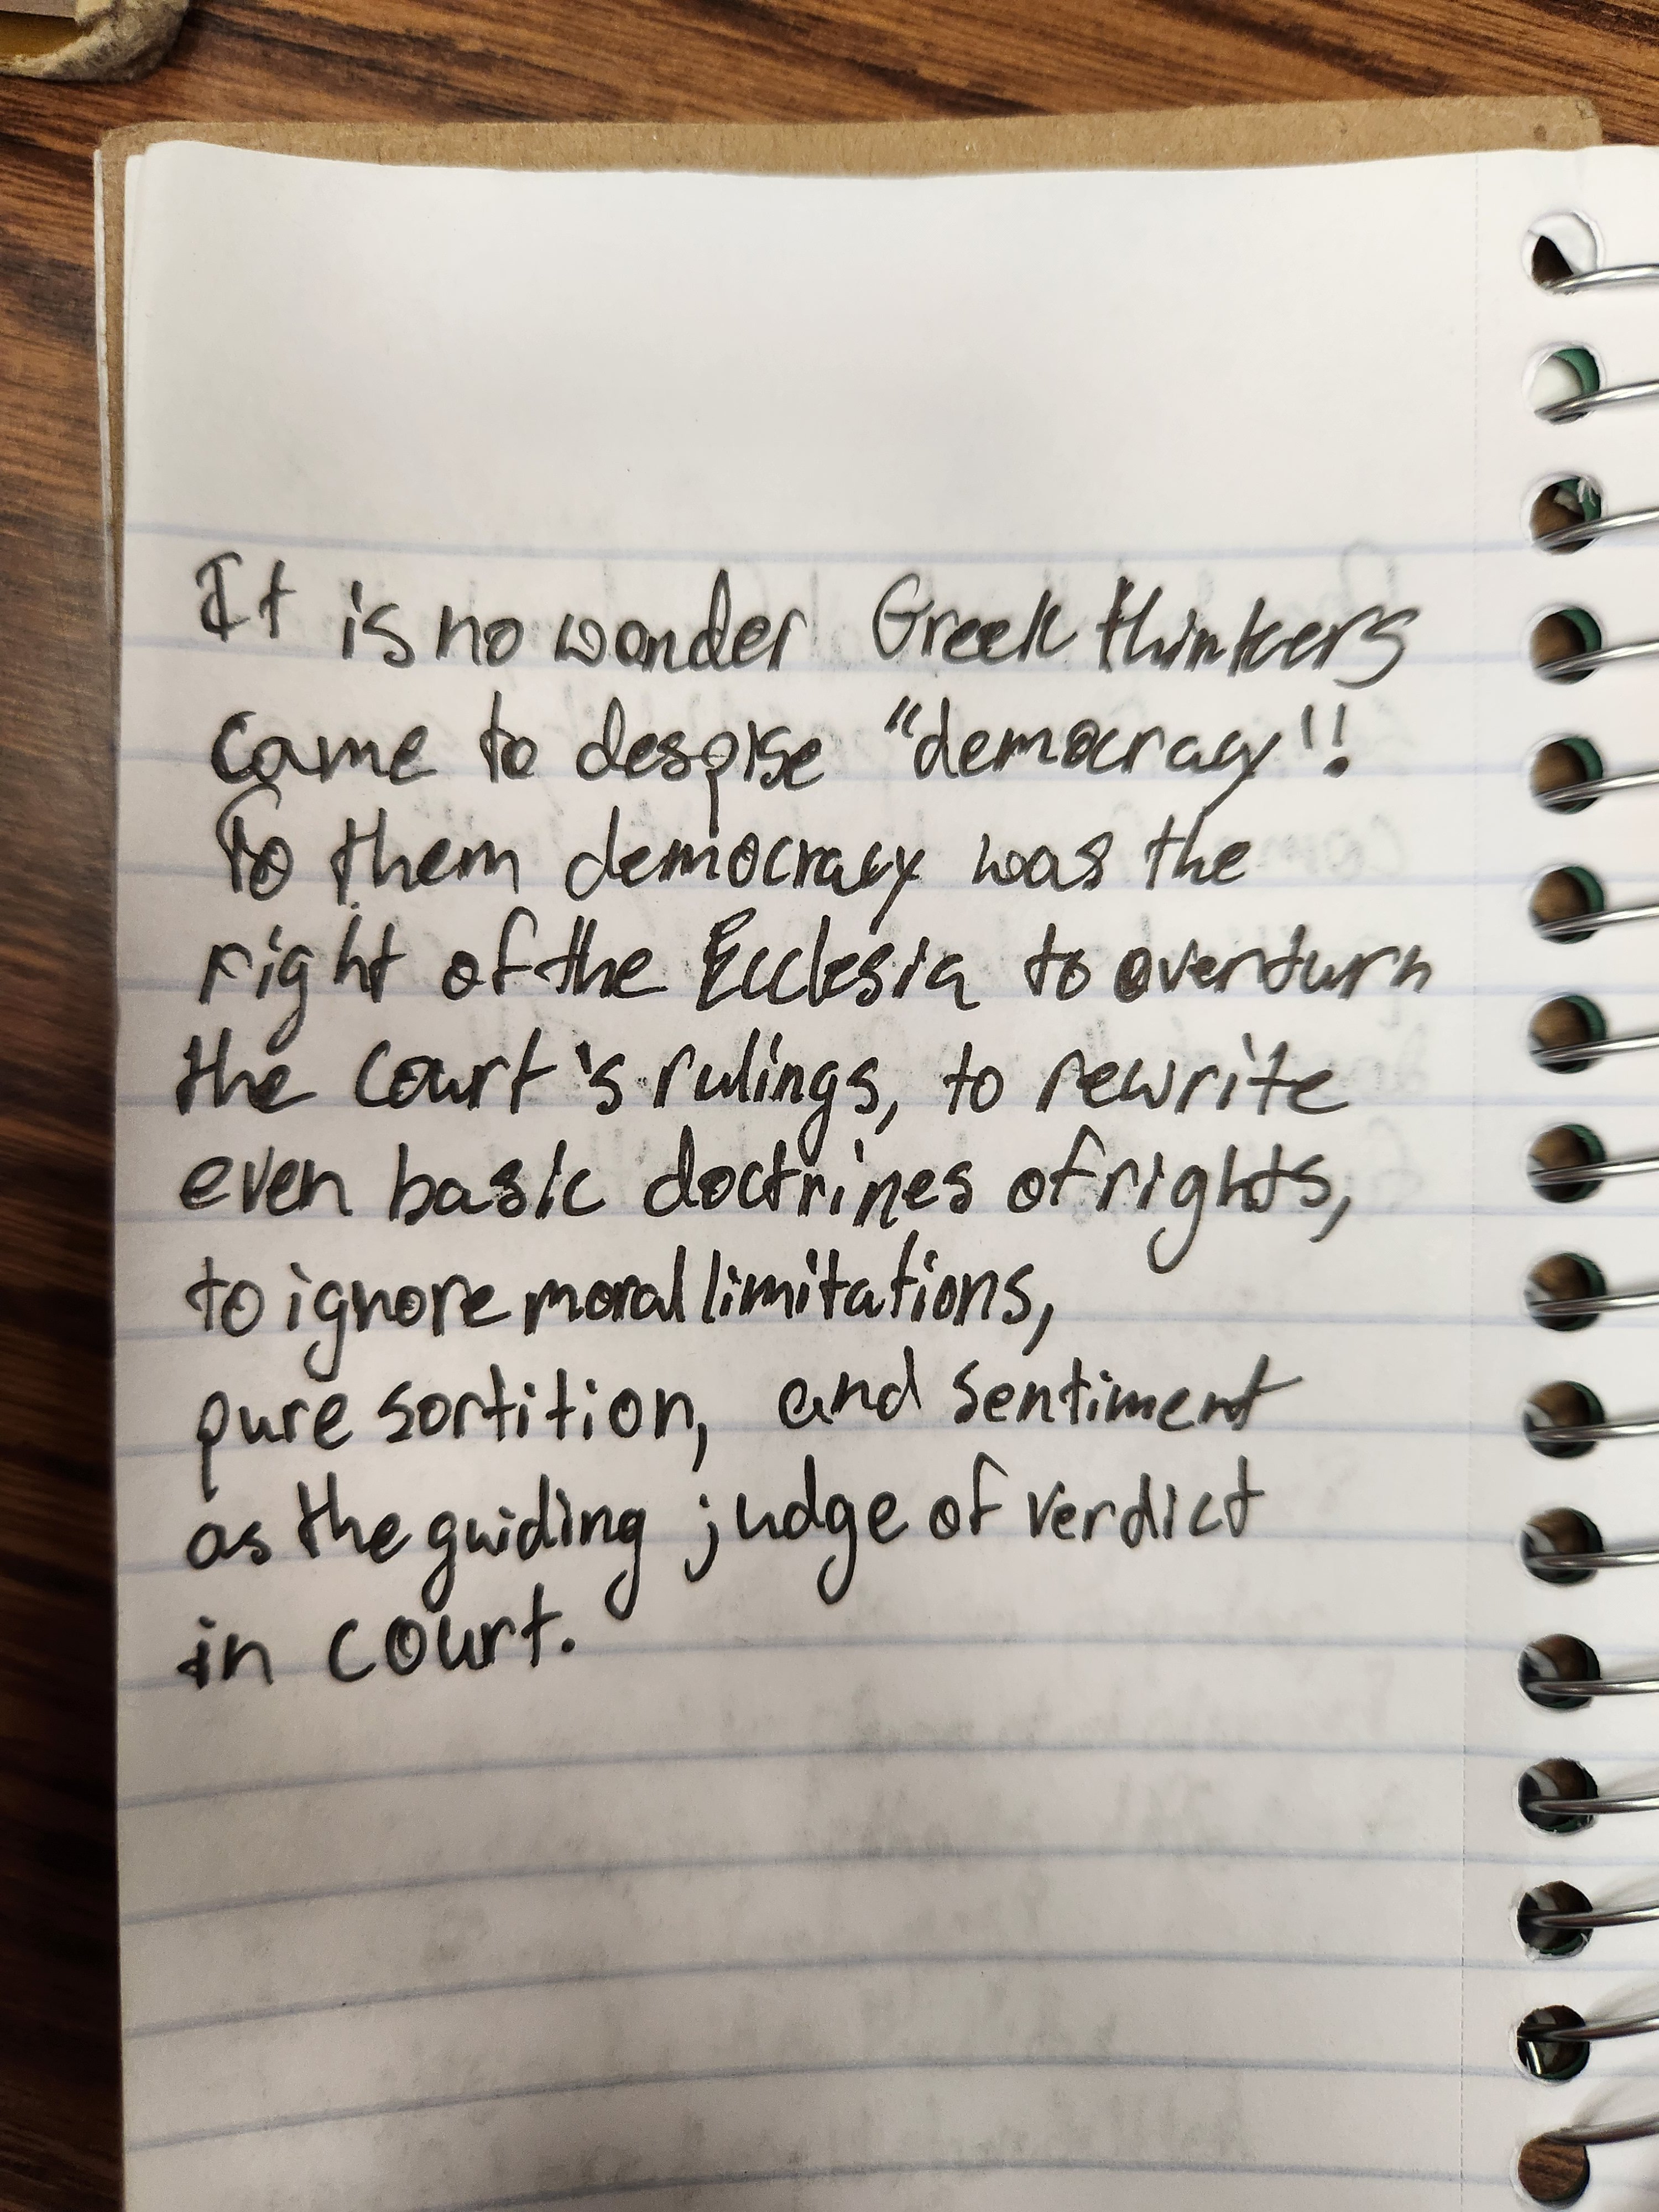 It is no wonder Greek thinkers
came to despise "democracy"!
To them democracy was the
right of the Ecclesia to overturn
the court's rulings, to rewrite
even basic doctrines of rights,
to ignore moral limitations,
pure sortition, and sentiment
as the guiding judge of verdict
in court.